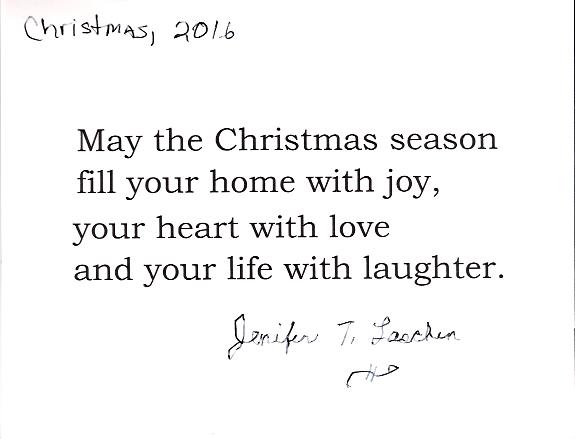 Christmas, 2016
May the Christmas season
fill your home with joy,
your heart with love
and your life with laughter.
Jenifer T.